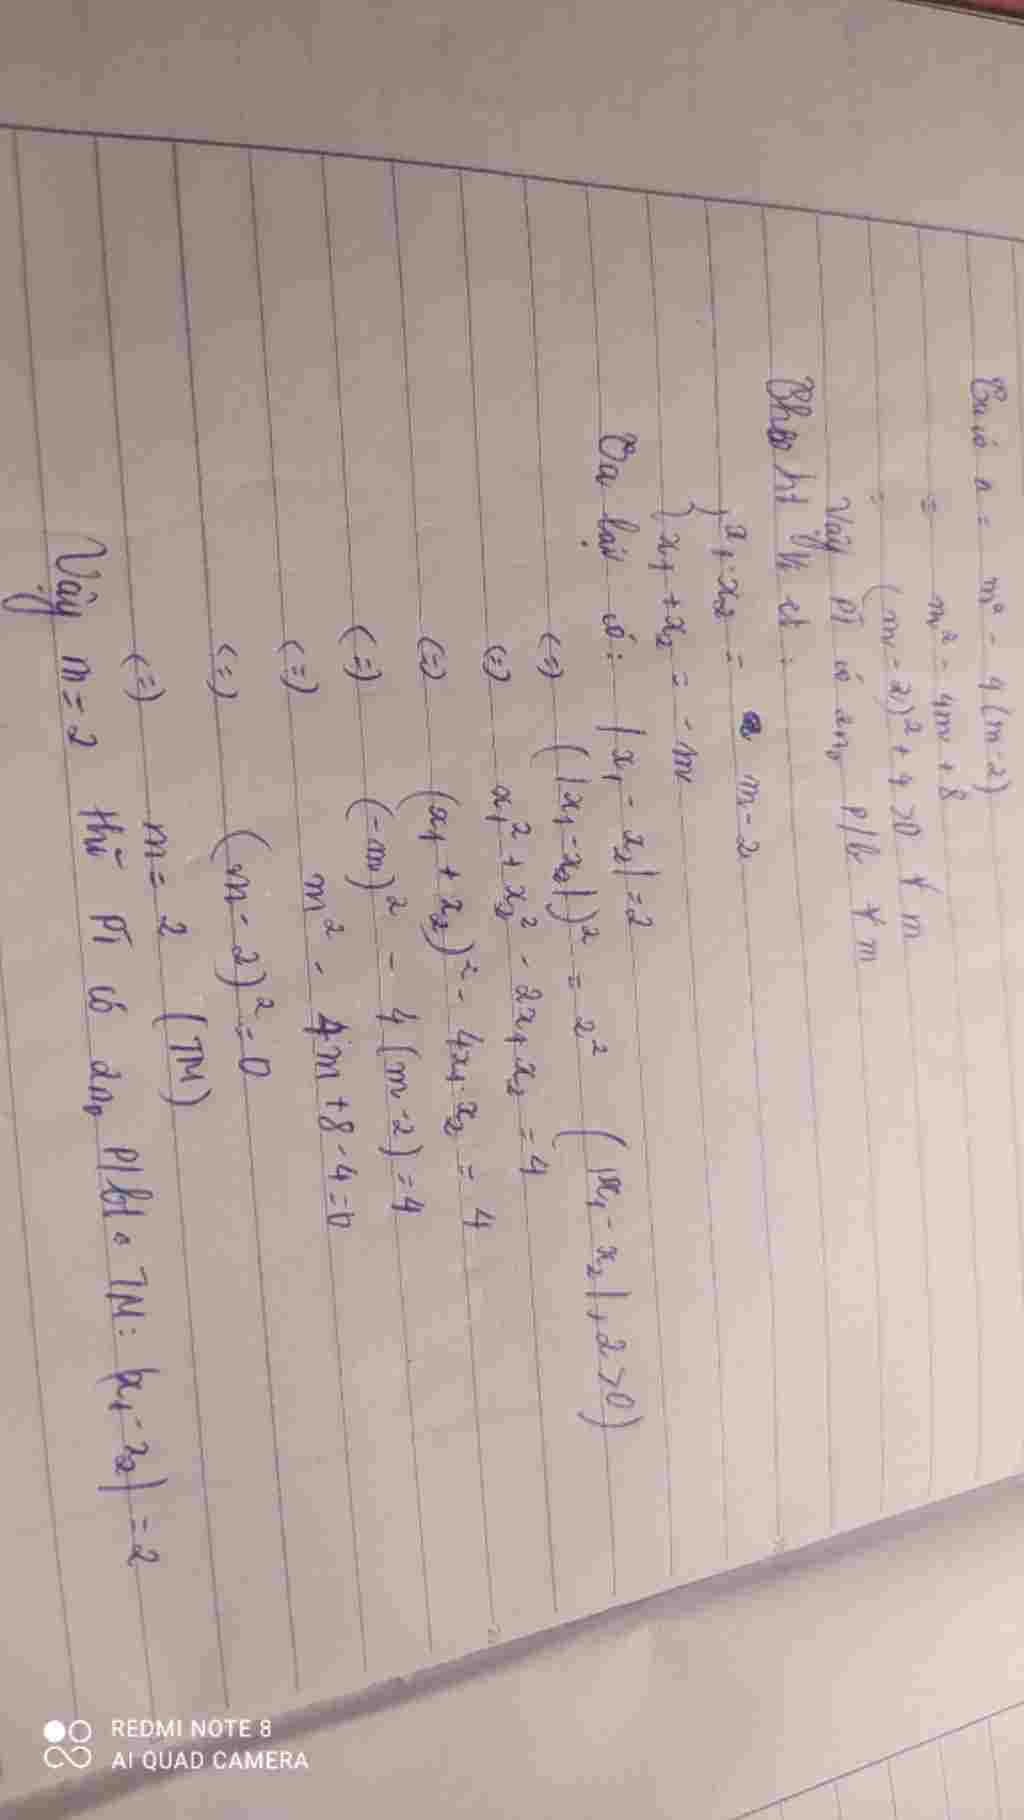 Ta có Δ = m² - 4(m-2)
= m² - 4m + 8
= (m - 2)² + 4 > 0 ∀ m
Vậy PT có 2no p/b ∀ m
Theo ht Vi et :
{ x₁.x₂ = m-2
x₁ + x₂ = -m
Ta lại có: |x₁ - x₂| = 2
(=) (|x₁ - x₂|)² = 2² (|x₁ - x₂|, 2 > 0)
(=) x₁² + x₂² - 2x₁x₂ = 4
(=) (x₁ + x₂)² - 4x₁.x₂ = 4
(=) (-m)² - 4(m-2) = 4
(=) m² - 4m + 8 - 4 = 0
(=) (m - 2)² = 0
(=) m = 2 (TM)
Vậy m = 2 thì PT có 2no p/bt TM: |x₁ - x₂| = 2
REDMI NOTE 8
AI QUAD CAMERA